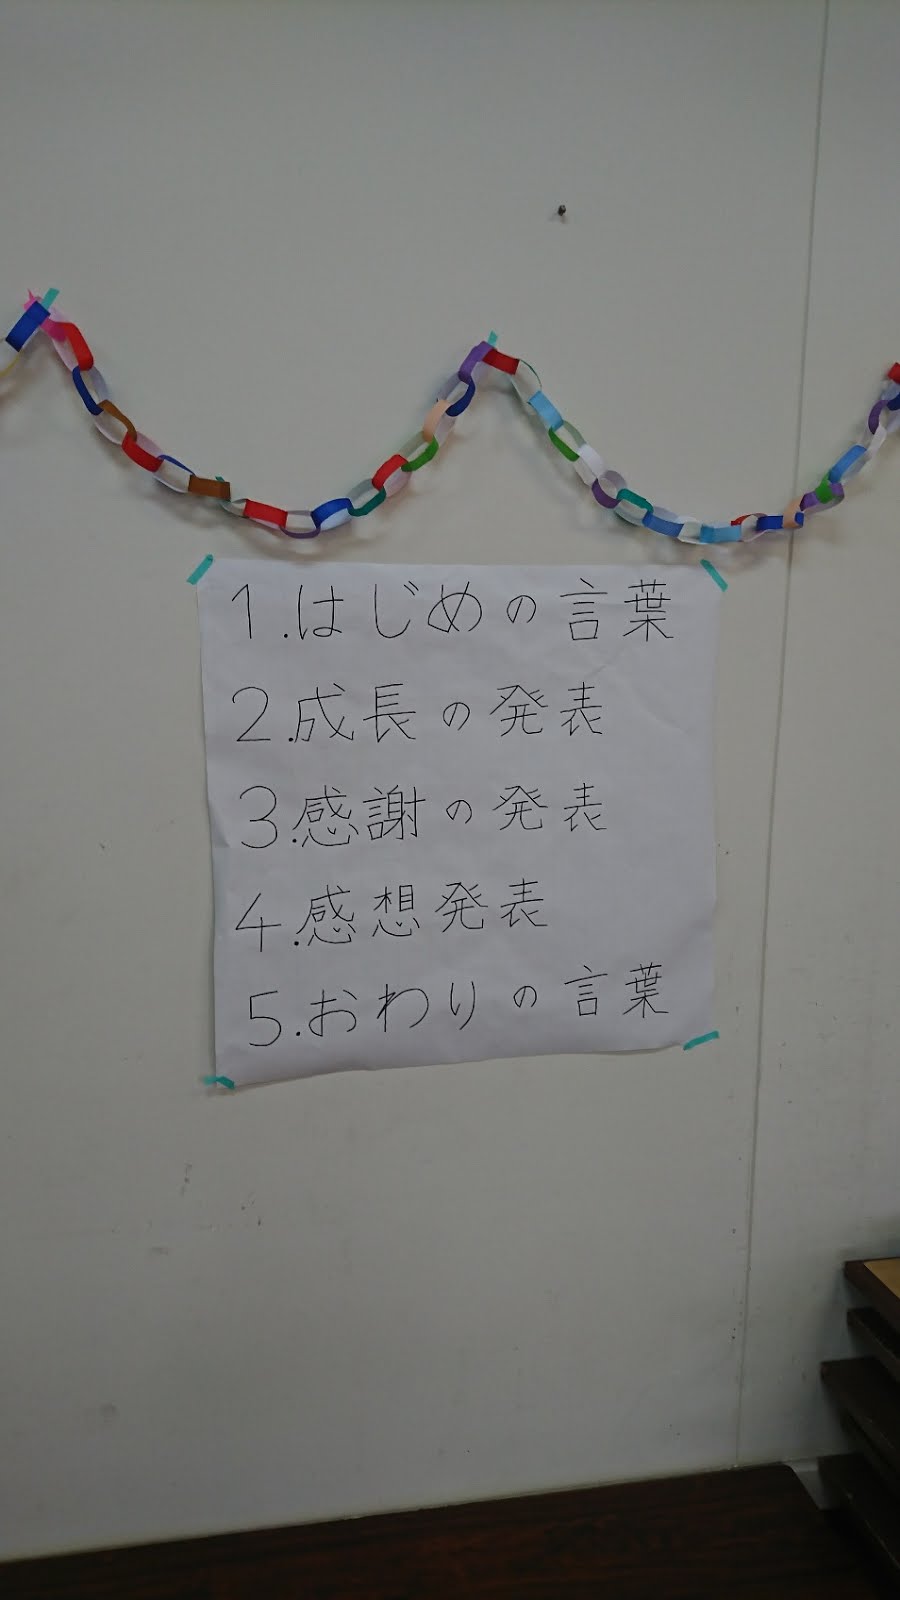 1.はじめの言葉
2.成長の発表
3.感謝の発表
4.感想発表
5.おわりの言葉